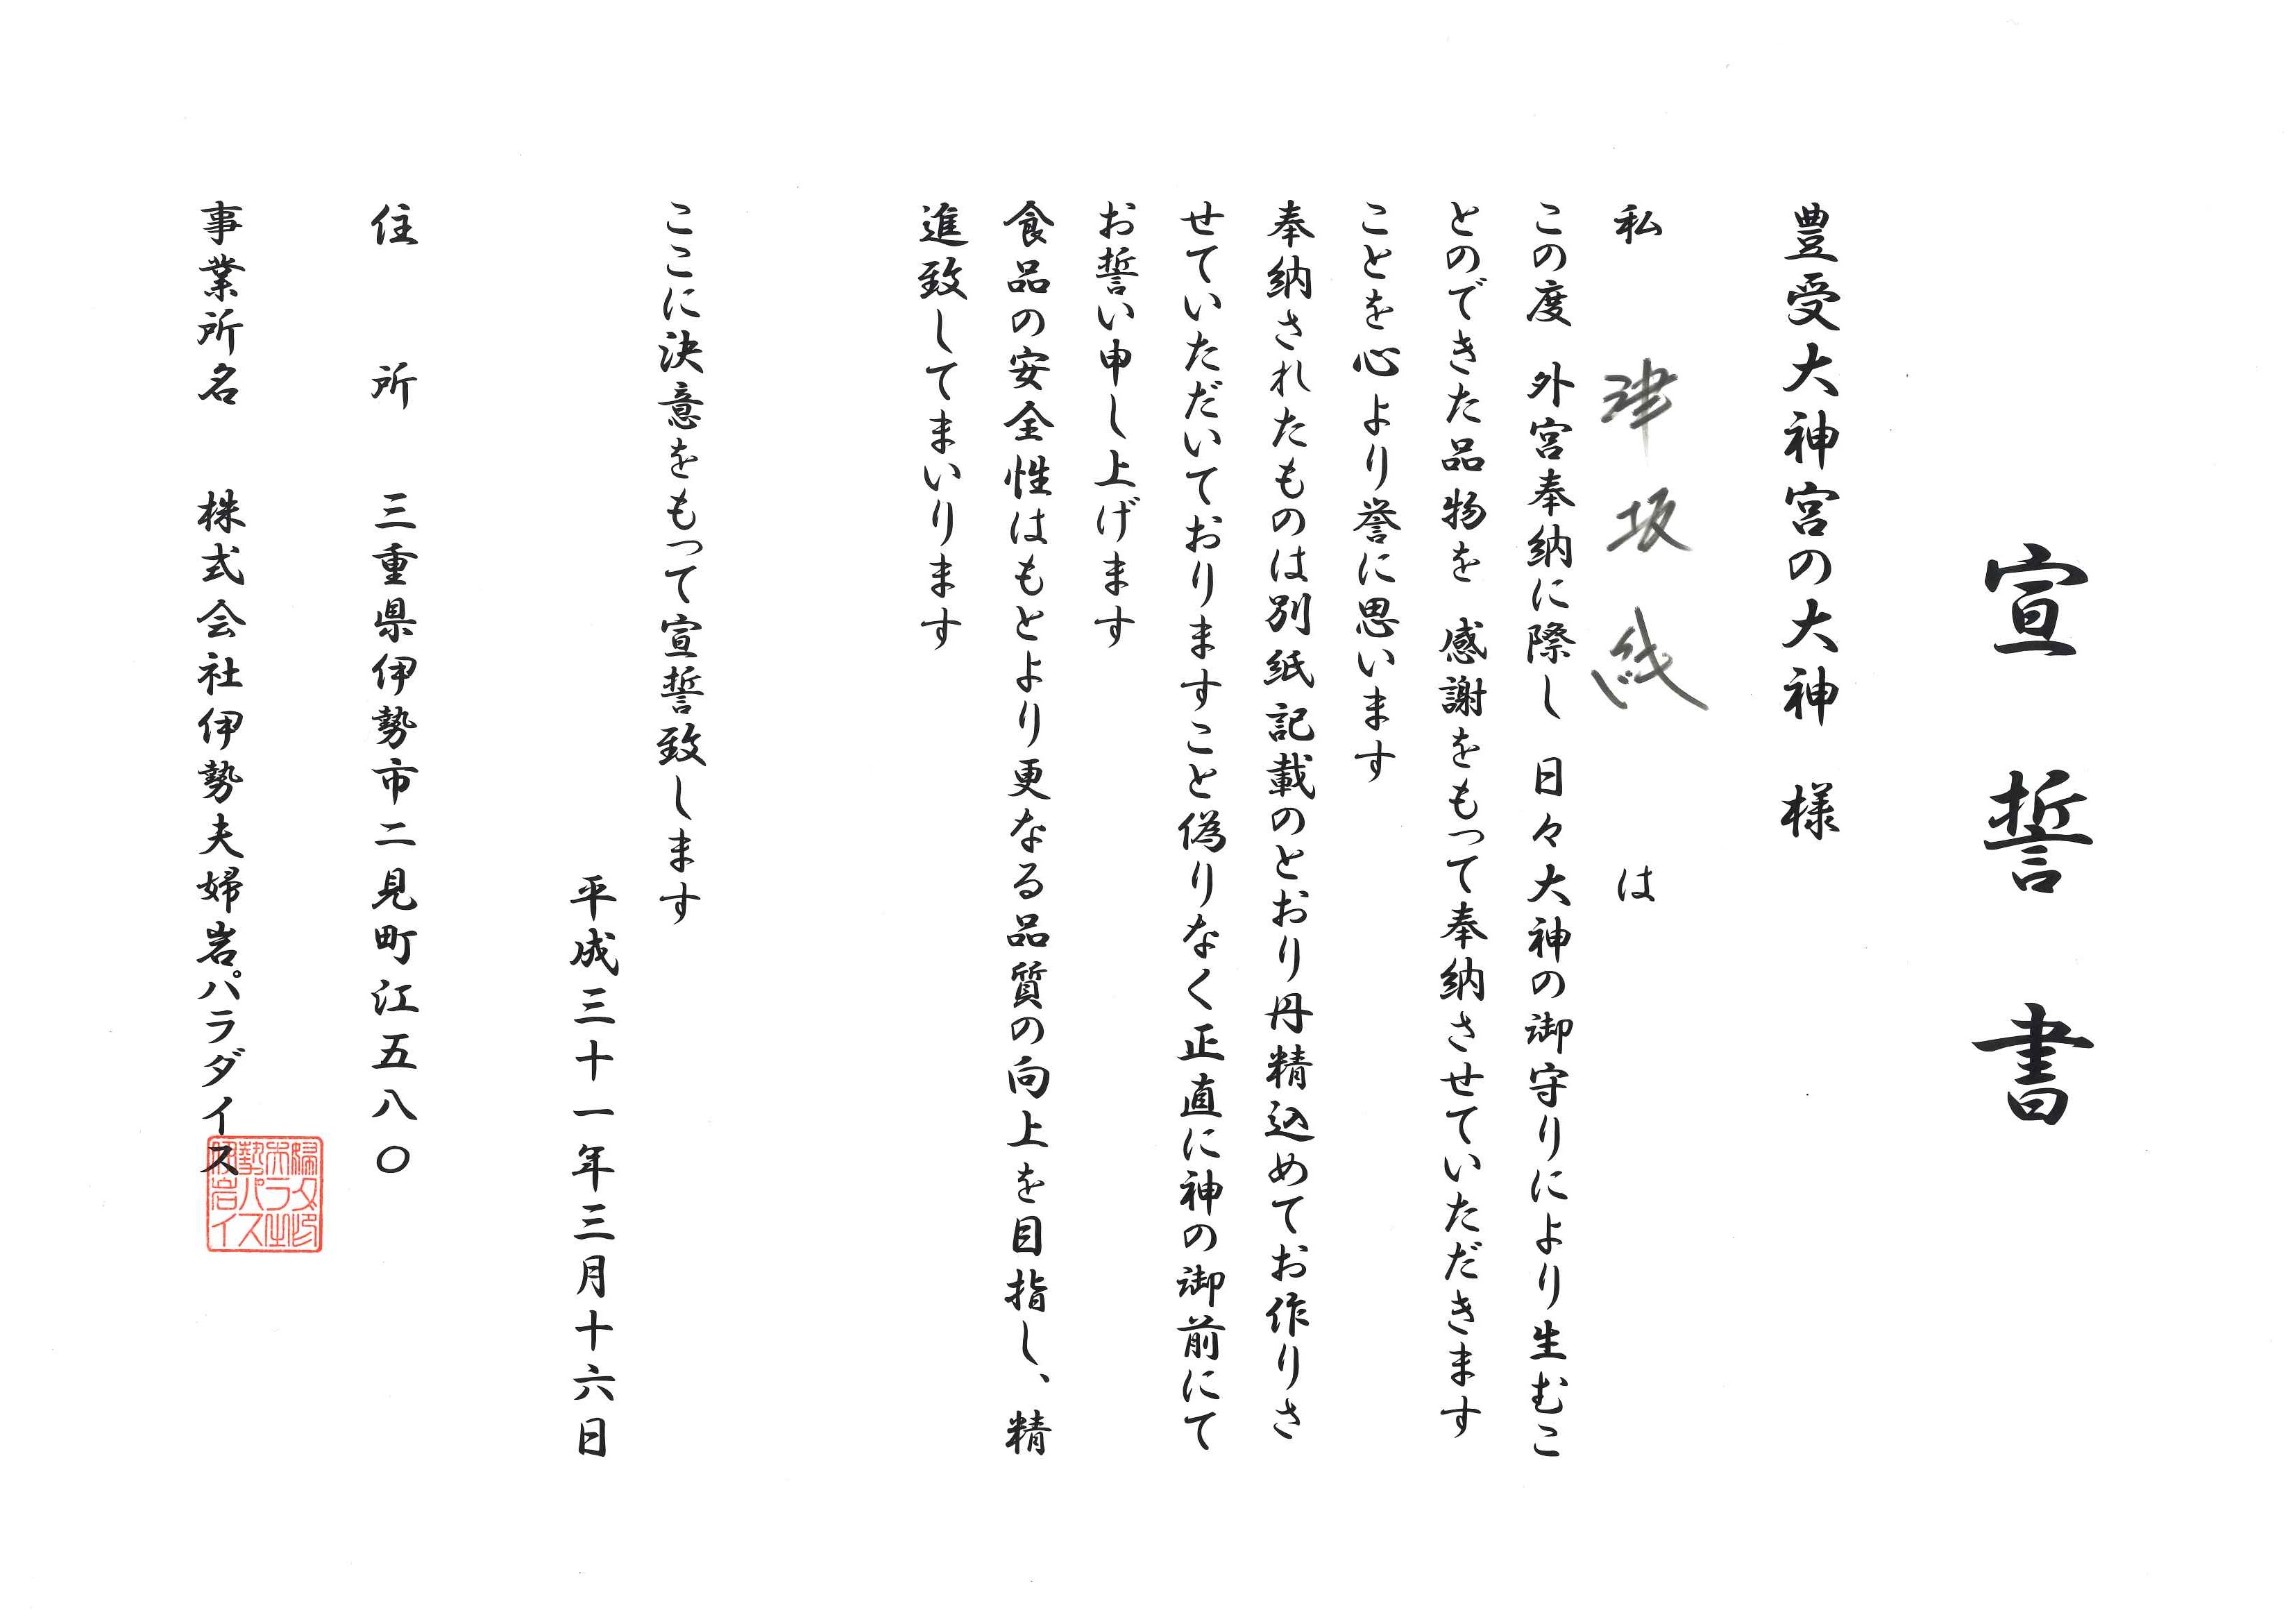 宣誓書
豊受大神宮の大神　様
私　津坂　　は
この度　外宮奉納に際し　日々大神の御守りにより生むこ
とのできた品物を　感謝をもって奉納させていただきます
ことを心より誉に思います
奉納されたものは別紙記載のとおり丹精込めてお作りさ
せていただいておりますこと偽りなく正直に神の御前にて
お誓い申し上げます
食品の安全性はもとより更なる品質の向上を目指し、精
進致してまいります
ここに決意をもって宣誓致します
平成三十一年三月十六日
住所　三重県伊勢市二見町江五八〇
事業所名　株式会社伊勢夫婦岩パラダイス